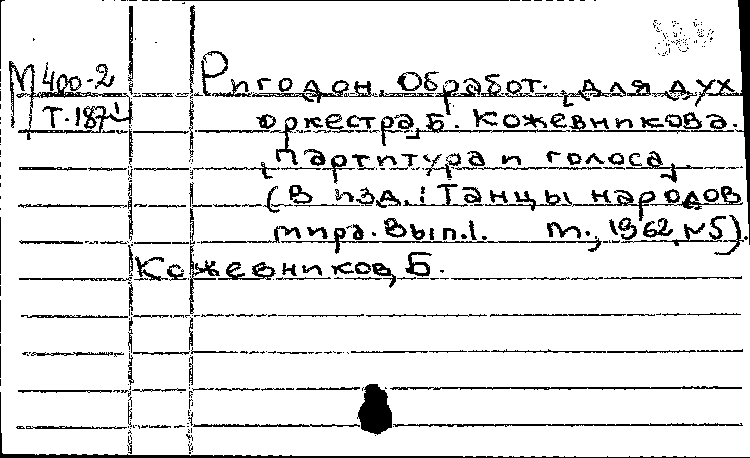 М 400-2
Т.187
Ригодон. Обработ. для дух
оркестра Б. Кожевникова.
Партитура и голоса.
(В изд.: Танцы народов
мира. Вып.1. М., 1962, №5).
Кожевников, Б.